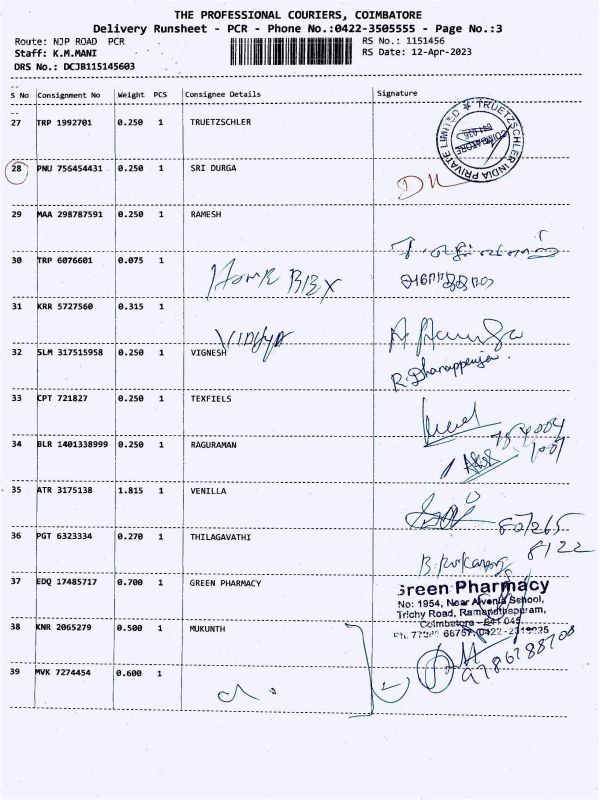 THE PROFESSIONAL COURIERS, COIMBATORE
Delivery Runsheet - PCR - Phone No.:0422-3505555 - Page No.:3
Route: NJP ROAD PCR
RS No.: 1151456
Staff: K.M.MANI
RS Date: 12-Apr-2023
DRS No.: DCJB115145603
S No Consignment No Weight PCS Consignee Details Signature
27 TRP 1992701 0.250 1 TRUETZSCHLER
TRUETZSCHLER INDIA PRIVATE LIMITED
COIMBATORE
28 PNU 756454431 0.250 1 SRI DURGA
29 MAA 298787591 0.250 1 RAMESH
30 TRP 6076601 0.075 1
31 KRR 5727560 0.315 1
32 SLM 317515958 0.250 1 VIGNESH
33 CPT 721827 0.250 1 TEXFIELS
34 BLR 1401338999 0.250 1 RAGURAMAN
35 ATR 3175138 1.815 1 VENILLA
36 PGT 6323334 0.270 1 THILAGAVATHI
8122
37 EDQ 17485717 0.700 1 GREEN PHARMACY
Green Pharmacy
No: 1954, Near Alvernia School,
Trichy Road, Ramanathapuram,
Coimbatore - 641 045
38 KNR 2065279 0.500 1 MUKUNTH
39 MVK 7274454 0.600 1